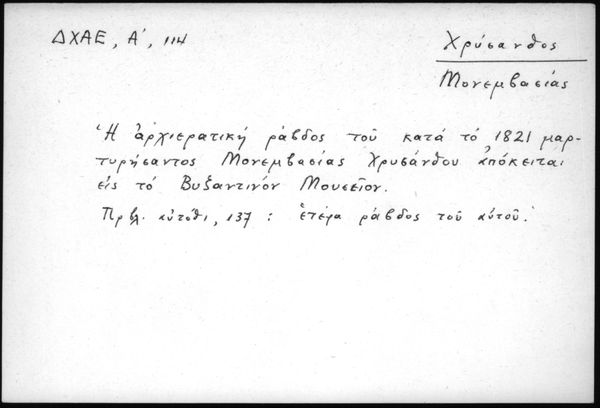 ΔΧΑΕ, Α΄, 114
Χρύσανθος
Μονεμβασίας
Ἡ ἀρχιερατική ράβδος τοῦ κατά τό 1821 μαρ-
τυρήσαντος Μονεμβασίας Χρυσάνθου ἀπόκειται
εἰς τό Βυζαντινόν Μουσεῖον.
Πρβλ. αὐτόθι, 137 : ἑτέρα ράβδος τοῦ αὐτοῦ.